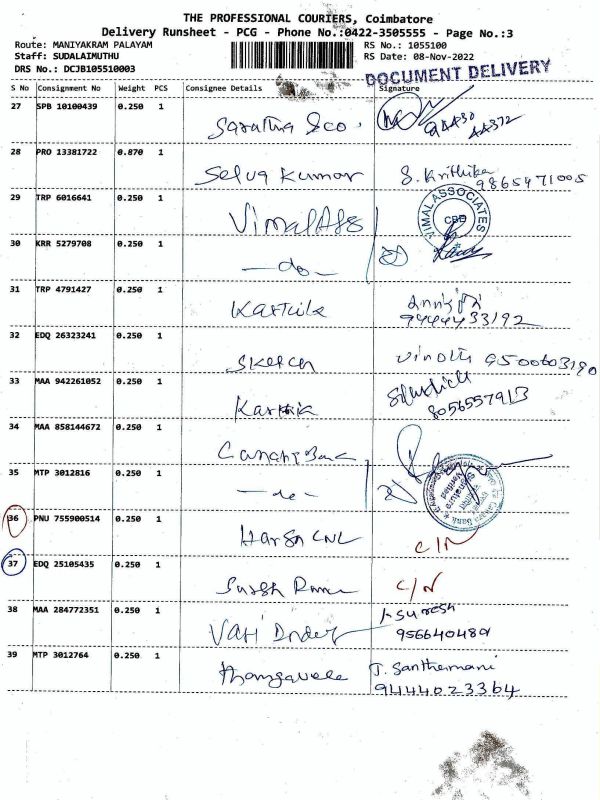 THE PROFESSIONAL COURIERS, Coimbatore
Delivery Runsheet - PCG - Phone No.:0422-3505555 - Page No.:3
Route: MANIYAKRAM PALAYAM
Staff: SUDALAIMUTHU
DRS No.: DCJB105510003
RS No.: 1055100
RS Date: 08-Nov-2022
DOCUMENT DELIVERY
S No Consignment No Weight PCS Consignee Details Signature
27 SPB 10100439 0.250 1
28 PRO 13381722 0.870 1 Selva Kumar S. Krithika
9865471005
29 TRP 6016641 0.250 1 Vimal Ass VIMAL ASSOCIATES CBE
30 KRR 5279708 0.250 1 —do—
31 TRP 4791427 0.250 1 Karthik
9444433192
32 EDQ 26323241 0.250 1 Sketch Vinoth 9500603190
33 MAA 942261052 0.250 1 Karthik
8056557913
34 MAA 858144672 0.250 1 Canara Bank
35 MTP 3012816 0.250 1 —do—
36 PNU 755900514 0.250 1 Harsh CNL C/N
37 EDQ 25105435 0.250 1 C/N
38 MAA 284772351 0.250 1 Suresh
956640489
39 MTP 3012764 0.250 1 Thangavele J. Santhamani
9444023364